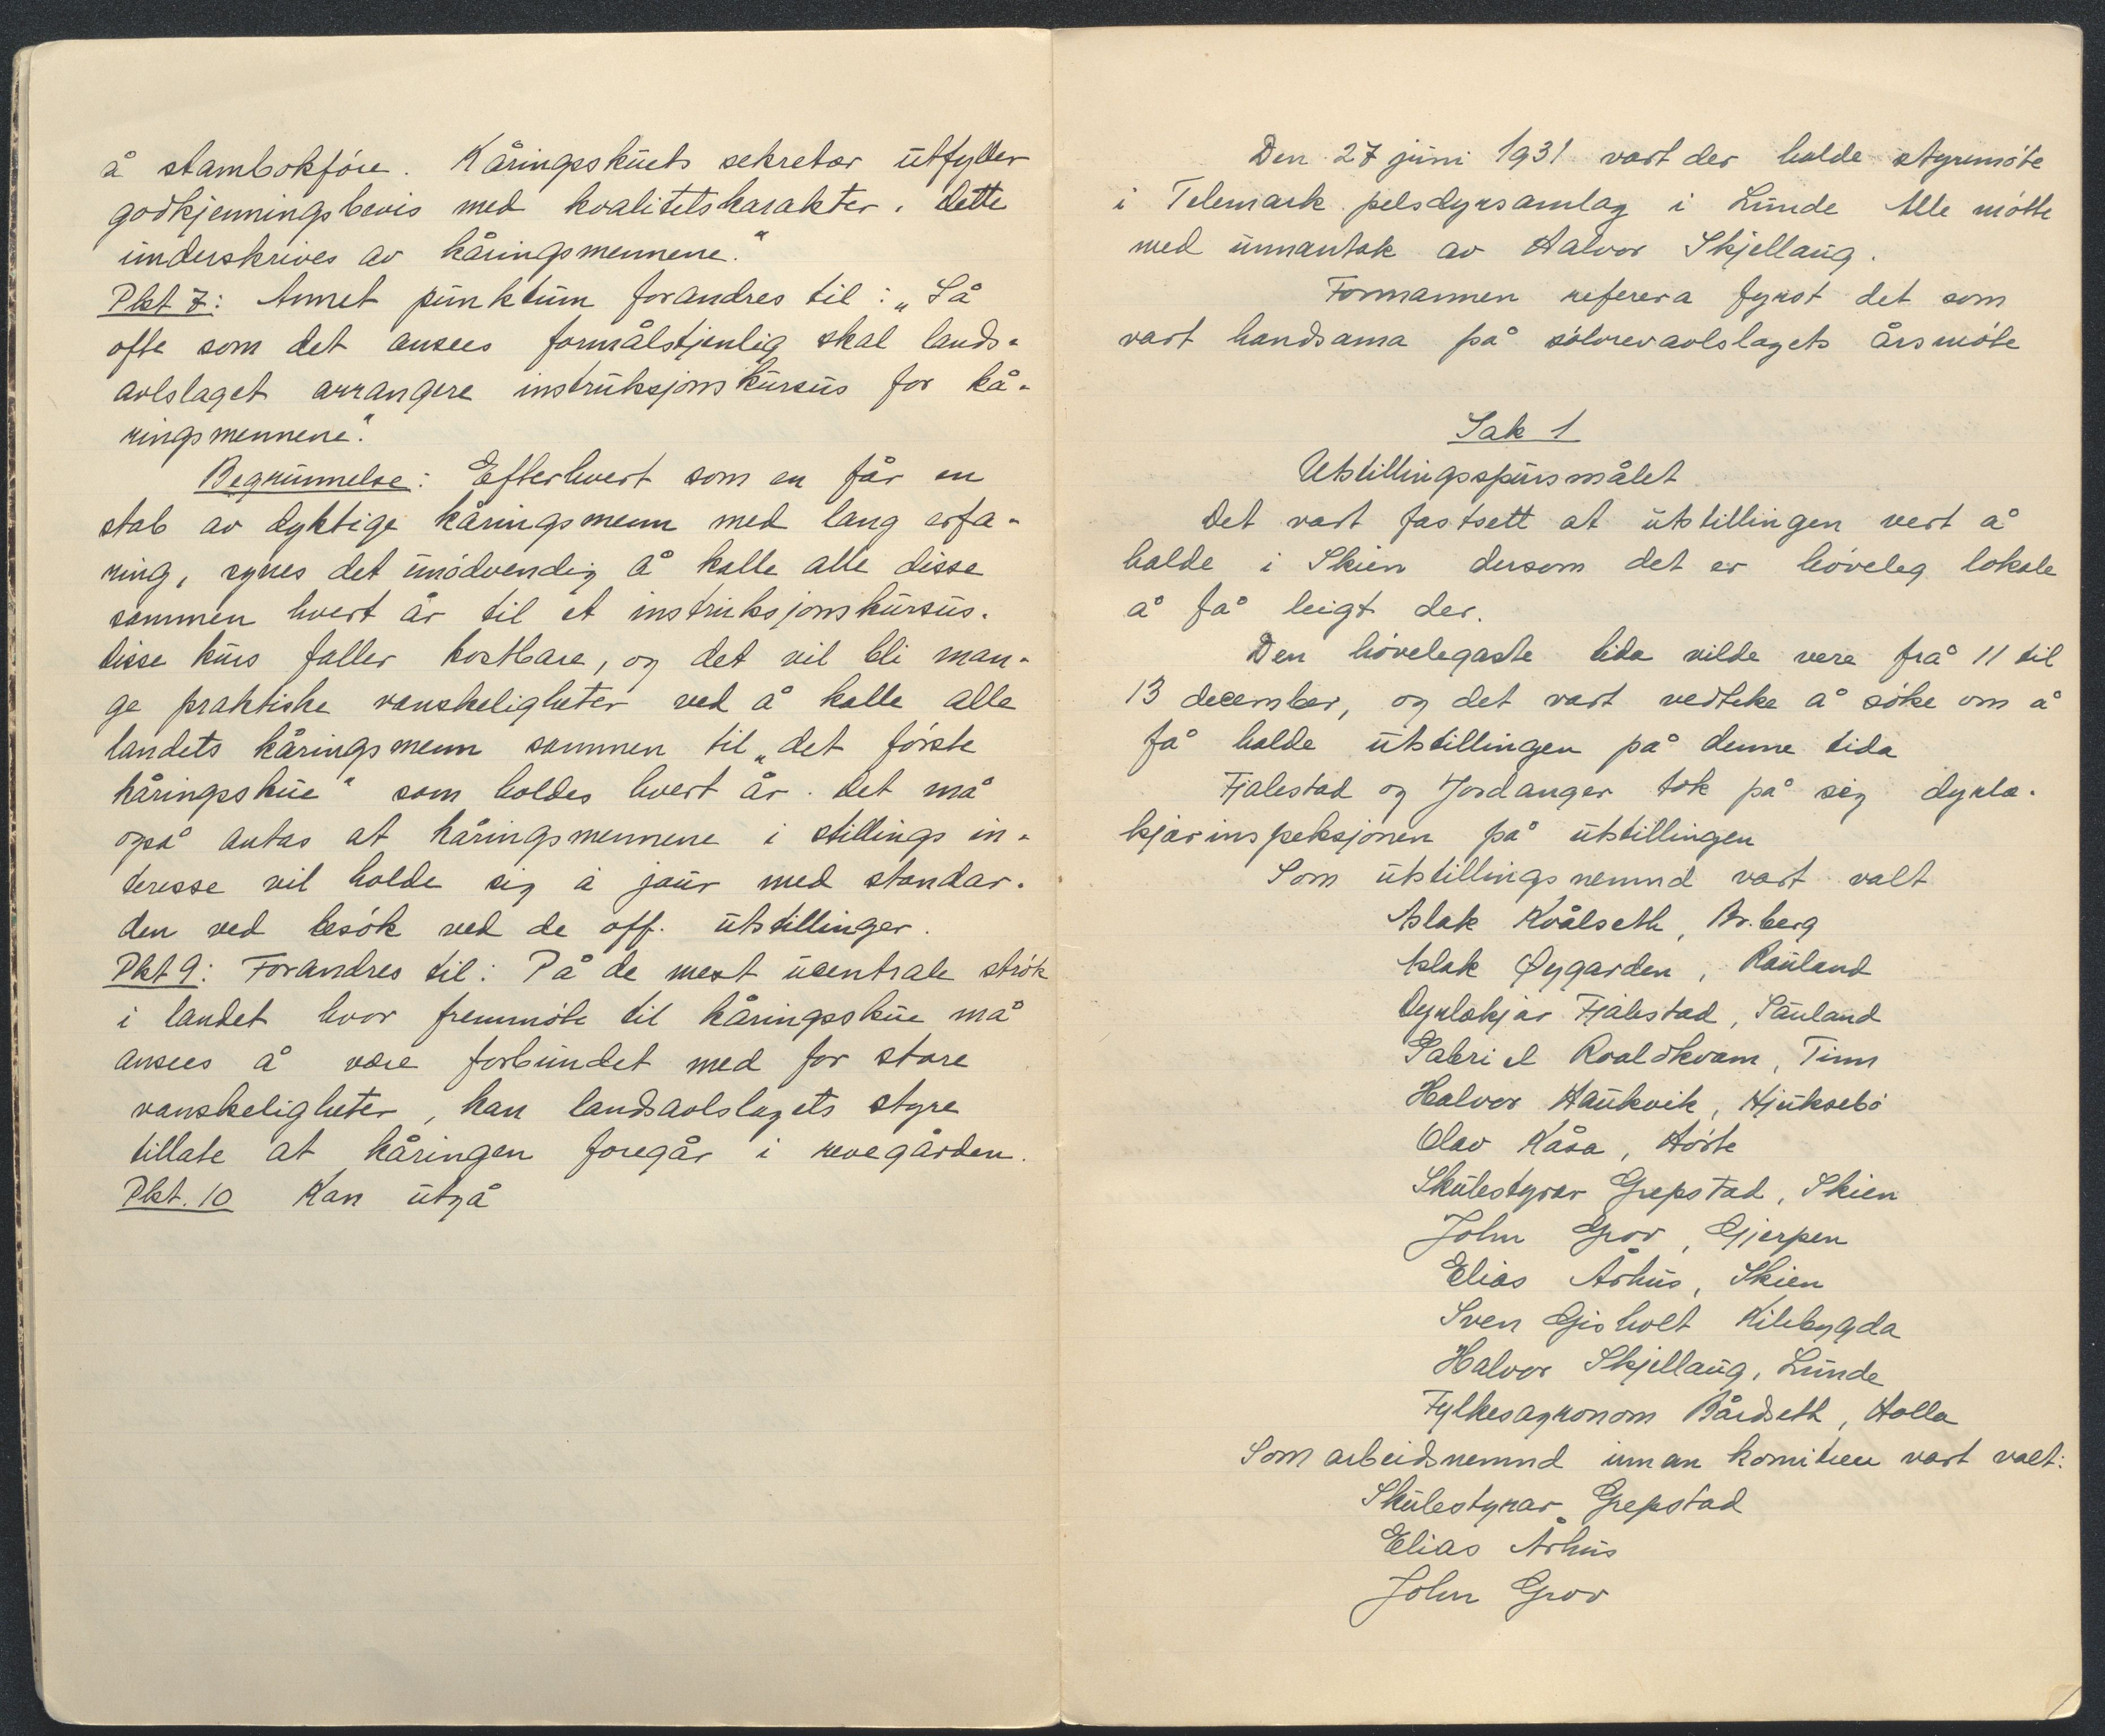 å stambokföre. Kåringsskuets sekretær utfyller
godkjenningsbevis med kvalitetskarakter. Dette
underskrives av kåringsmennene."
Pkt 7: Annet punktum forandres til: „Så
ofte som det ansees formålstjenlig skal lands-
avlslaget arrangere instruksjonskursus for kå-
ringsmennene".
Begrunnelse: Efterhvert som en får en
stab av dyktige kåringsmenn med lang erfa-
ring, synes det unödvendig å kalle alle disse
sammen hvert år til et instruksjonskursus.
Disse kurs faller kostbare, og det vil bli man-
ge praktiske vanskeligheter ved å kalle alle
landets kåringsmenn sammen til „det förste
kåringsskue" som holdes hvert år. Det må
også antas at kåringsmennene i stillings in-
teresse vil holde sig á jour med standar-
den ved besök ved de off. utstillinger.
Pkt 9: Forandres til: På de mest usentrale strök
i landet hvor fremmöte til kåringsskue må
ansees å være forbundet med for store
vanskeligheter, kan landsavlslagets styre
tillate at kåringen foregår i revegården.
Pkt. 10 Kan utgå
Den 27 juni 1931 vart der halde styremöte
i Telemark pelsdyrsamlag i Lunde Alle mötte
med unnantak av Halvor Skjellaug.
Formannen referera fyrst det som
vart handsama på sölvrevavlslagets årsmöte
Sak 1
Utstillingsspursmålet
Det vart fastsett at utstillingen vert å
halde i Skien dersom det er höveleg lokale
å få leigt der.
Den hövelegaste tida vilde vere frå 11 til
13 december, og det vart vedteke å söke om å
få halde utstillingen på denne tida
Fjalestad og Jordanger tok på sig dyrlæ-
kjarinspeksjonen på utstillingen
Som utstillingsnemnd vart valt
Aslak Kvålseth, Br.berg
Aslak Øygarden, Rauland
Dyrlækjar Fjalestad, Sauland
Gabriel Roaldkvam, Tinn
Halvor Haukvik, Hjuksebö
Olav Kåsa, Hörte
Skulestyrar Grepstad, Skien
John Grov, Gjerpen
Elias Århus, Skien
Sven Gisholt Kilebygda
Halvor Skjellaug, Lunde
Fylkesagronom Bårdseth, Holla
Som arbeidsnemnd innan komiteen vart valt:
Skulestyrar Grepstad
Elias Århus
John Grov